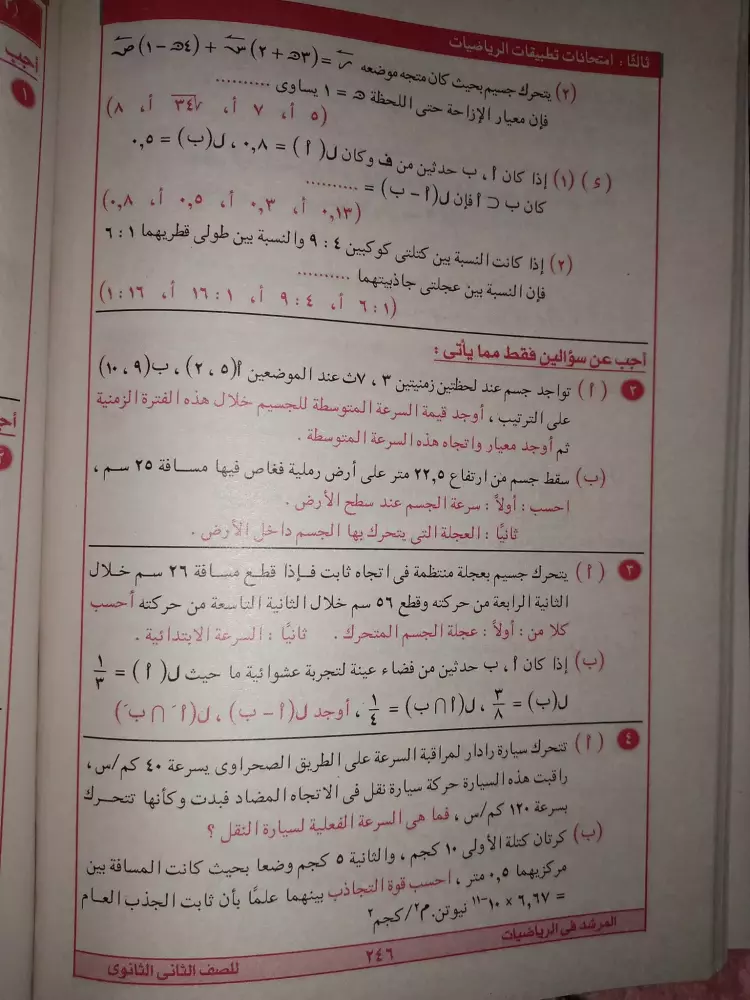 ثالثًا : امتحانات تطبيقات الرياضيات
(٢) يتحرك جسيم بحيث كان متجه موضعه ر = (٣ھ + ٢) س + (٤ھ − ١) ص
فإن معيار الإزاحة حتى اللحظة ھ = ١ يساوى ..........
(٥ أ، ٧ أ، √٣٤ أ، ٨)
(٤) (١) إذا كان أ ، ب حدثين من ف وكان ل(أ) = ٠,٨ ، ل(ب) = ٠,٥
كان ب ⊂ أ فإن ل(أ − ب) = ..........
(٠,١٣ أ، ٠,٣ أ، ٠,٥ أ، ٠,٨)
(٢) إذا كانت النسبة بين كتلتى كوكبين ٤ : ٩ والنسبة بين طولى قطريهما ١ : ٦
فإن النسبة بين عجلتى جاذبيتهما ..........
(١ : ٦ أ، ٤ : ٩ أ، ١ : ١٦ أ، ١٦ : ١)
أجب عن سؤالين فقط مما يأتى :
٢ (أ) تواجد جسم عند لحظتين زمنيتين ٣ ، ٧ث عند الموضعين أ(٥ ، ٢) ، ب(٩ ، ١٠)
على الترتيب ، أوجد قيمة السرعة المتوسطة للجسيم خلال هذه الفترة الزمنية
ثم أوجد معيار واتجاه هذه السرعة المتوسطة .
(ب) سقط جسم من ارتفاع ٢٢,٥ متر على أرض رملية فغاص فيها مسافة ٢٥ سم ،
احسب : أولاً : سرعة الجسم عند سطح الأرض .
ثانيًا : العجلة التى يتحرك بها الجسم داخل الأرض .
٣ (أ) يتحرك جسيم بعجلة منتظمة فى اتجاه ثابت فإذا قطع مسافة ٢٦ سم خلال
الثانية الرابعة من حركته وقطع ٥٦ سم خلال الثانية التاسعة من حركته أحسب
كلا من : أولاً : عجلة الجسم المتحرك . ثانيًا : السرعة الابتدائية .
(ب) إذا كان أ ، ب حدثين من فضاء عينة لتجربة عشوائية ما حيث ل(أ) = ١/٣
ل(ب) = ٣/٨ ، ل(أ ∩ ب) = ١/٤ ، أوجد ل(أ − ب) ، ل(أَ ∩ بَ)
٤ (أ) تتحرك سيارة رادار لمراقبة السرعة على الطريق الصحراوى بسرعة ٤٠ كم/س ،
راقبت هذه السيارة حركة سيارة نقل فى الاتجاه المضاد فبدت وكأنها تتحرك
بسرعة ١٢٠ كم/س ، فما هى السرعة الفعلية لسيارة النقل ؟
(ب) كرتان كتلة الأولى ١٠ كجم ، والثانية ٥ كجم وضعا بحيث كانت المسافة بين
مركزيهما ٠,٥ متر ، احسب قوة التجاذب بينهما علمًا بأن ثابت الجذب العام
= ٦,٦٧ × ١٠⁻¹¹ نيوتن.م²/كجم²
المرشد فى الرياضيات
٢٤٦
للصف الثانى الثانوى
أجب
١
أج
٢